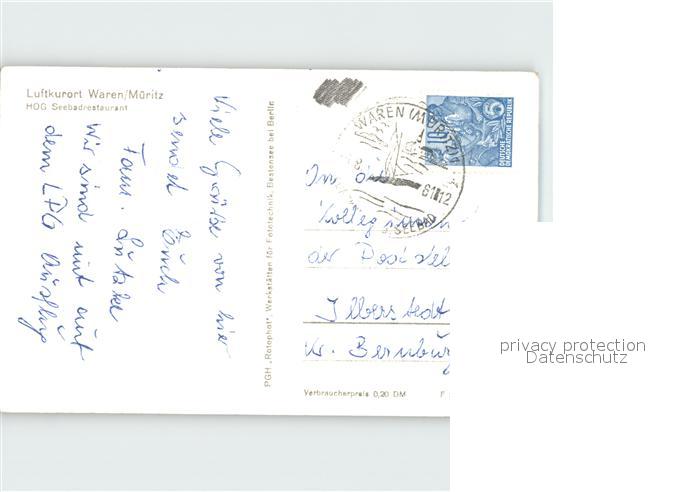 Luftkurort Waren/Müritz
HOG Seebadrestaurant
Viele Grüße von hier
sendet Euch
Fam.
Wir sind mit auf
dem LPG Ausflug
PGH „Rotophot“, Werkstätten für Fototechnik, Bestensee bei Berlin
WAREN (MÜRITZ) 1
61-12
SEEBAD
10
DEUTSCHE
DEMOKRATISCHE REPUBLIK
An die
Kolleginnen
der Poststel
Ilberstedt
Kr. Bernburg
Verbraucherpreis 0,20 DM
F
privacy protection
Datenschutz